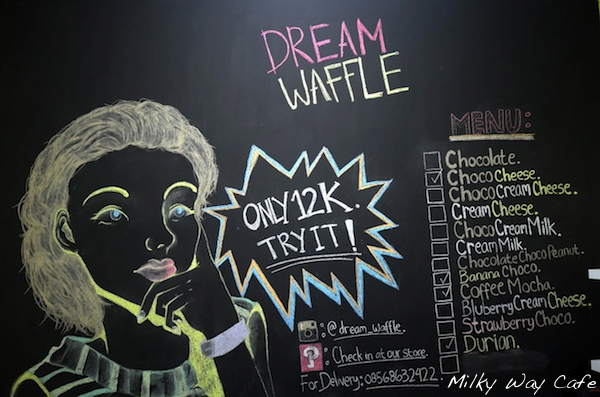 DREAM
WAFFLE
ONLY 12K.
TRY IT!
MENU:
Chocolate.
Choco Cheese.
Choco Cream Cheese.
Cream Cheese.
Choco Cream Milk.
Cream Milk.
Chocolate Choco Peanut.
Banana Choco.
Coffee Mocha.
Bluberry Cream Cheese.
Strawberry Choco.
Durian.
: @dream_waffle.
? : Check in at our store.
For Delivery: 08568632422.
Milky Way Cafe